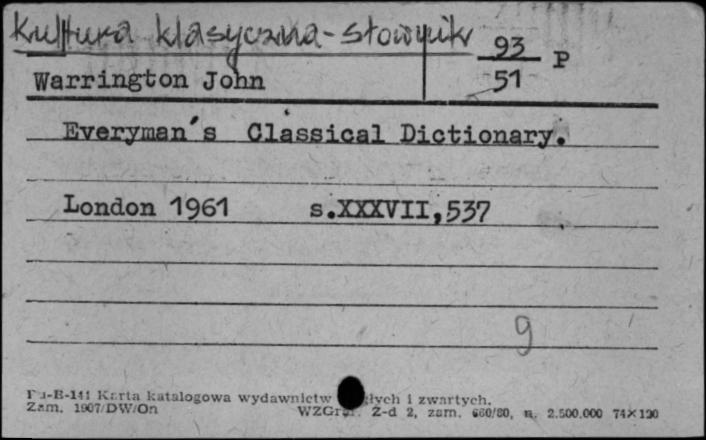 Kultura klasyczna-słownik
93 P
51
Warrington John
Everyman's Classical Dictionary.
London 1961 s.XXXVII,537
9
Pu-B-141 Karta katalogowa wydawnictw i zwartych.
Zam. 1907/DW/On WZGraf. Z-d 2, zam. 660/80, n. 2.500.000 74×120